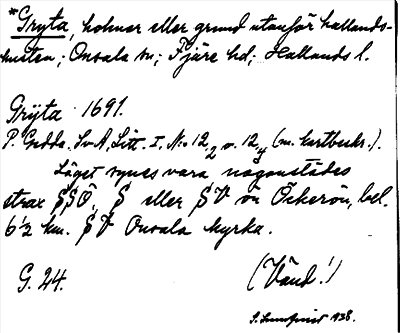 *Gryta, holmar eller grund utanför hallands-
kusten; Onsala sn; Fjäre hd; Hallands l.
Gryta 1691.
P. Gedda. SvA, Litt. I. No 12 2 o. 12 4 (m. kartbeskr.).
Läget synes vara någonstädes
strax SSÖ, S eller SV om Öckerön, bel.
6½ km. SV Onsala kyrka.
G. 24. (Vänd!)
S. Lundqvist 1938.